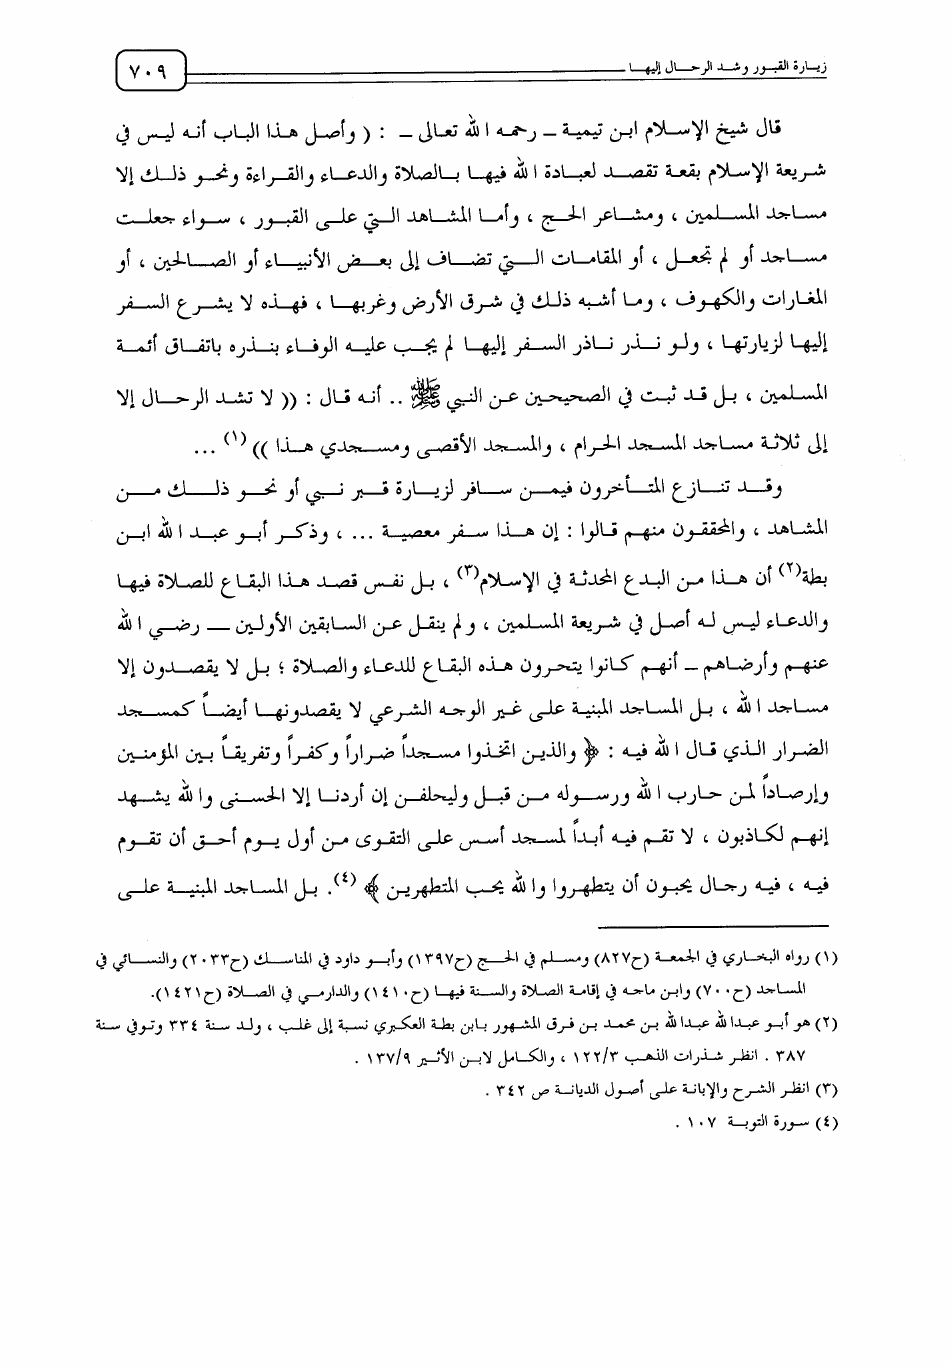 زيارة القبور وشد الرحال إليها
٧٠٩
قال شيخ الإسلام ابن تيمية – رحمه الله تعالى – : ( وأصل هذا الباب أنه ليس في
شريعة الإسلام بقعة تقصد لعبادة الله فيها بالصلاة والدعاء والقراءة ونحو ذلك إلا
مساجد المسلمين ، ومشاعر الحج ، وأما المشاهد التي على القبور ، سواء جعلت
مساجد أو لم تجعل ، أو المقامات التي تضاف إلى بعض الأنبياء أو الصالحين ، أو
المغارات والكهوف ، وما أشبه ذلك في شرق الأرض وغربها ، فهذه لا يشرع السفر
إليها لزيارتها ، ولو نذر ناذر السفر إليها لم يجب عليه الوفاء بنذره باتفاق أئمة
المسلمين ، بل قد ثبت في الصحيحين عن النبي ﷺ .. أنه قال : (( لا تشد الرحال إلا
إلى ثلاثة مساجد المسجد الحرام ، والمسجد الأقصى ومسجدي هذا ))(١) ...
وقد تنازع المتأخرون فيمن سافر لزيارة قبر نبي أو نحو ذلك من
المشاهد ، والمحققون منهم قالوا : إن هذا سفر معصية ... ، وذكر أبو عبد الله ابن
بطة(٢) أن هذا من البدع المحدثة في الإسلام(٣) ، بل نفس قصد هذا البقاع للصلاة فيها
والدعاء ليس له أصل في شريعة المسلمين ، ولم ينقل عن السابقين الأولين – رضي الله
عنهم وأرضاهم – أنهم كانوا يتحرون هذه البقاع للدعاء والصلاة ؛ بل لا يقصدون إلا
مساجد الله ، بل المساجد المبنية على غير الوجه الشرعي لا يقصدونها أيضاً كمسجد
الضرار الذي قال الله فيه : ﴿ والذين اتخذوا مسجداً ضراراً وكفراً وتفريقاً بين المؤمنين
وإرصاداً لمن حارب الله ورسوله من قبل وليحلفن إن أردنا إلا الحسنى والله يشهد
إنهم لكاذبون ، لا تقم فيه أبداً لمسجد أسس على التقوى من أول يوم أحق أن تقوم
فيه ، فيه رجال يحبون أن يتطهروا والله يحب المتطهرين ﴾(٤). بل المساجد المبنية على
(١) رواه البخاري في الجمعة (ح٨٢٧) ومسلم في الحج (ح١٣٩٧) وأبو داود في المناسك (ح٢٠٣٣) والنسائي في
المساجد (ح٧٠٠) وابن ماجه في إقامة الصلاة والسنة فيها (ح١٤١٠) والدارمي في الصلاة (ح١٤٢١).
(٢) هو أبو عبدالله عبدالله بن محمد بن فرق المشهور بابن بطة العكبري نسبة إلى غلب ، ولد سنة ٣٣٤ وتوفي سنة
٣٨٧ . انظر شذرات الذهب ١٢٢/٣ ، والكامل لابن الأثير ١٣٧/٩ .
(٣) انظر الشرح والإبانة على أصول الديانة ص ٣٤٢ .
(٤) سورة التوبة ١٠٧ .